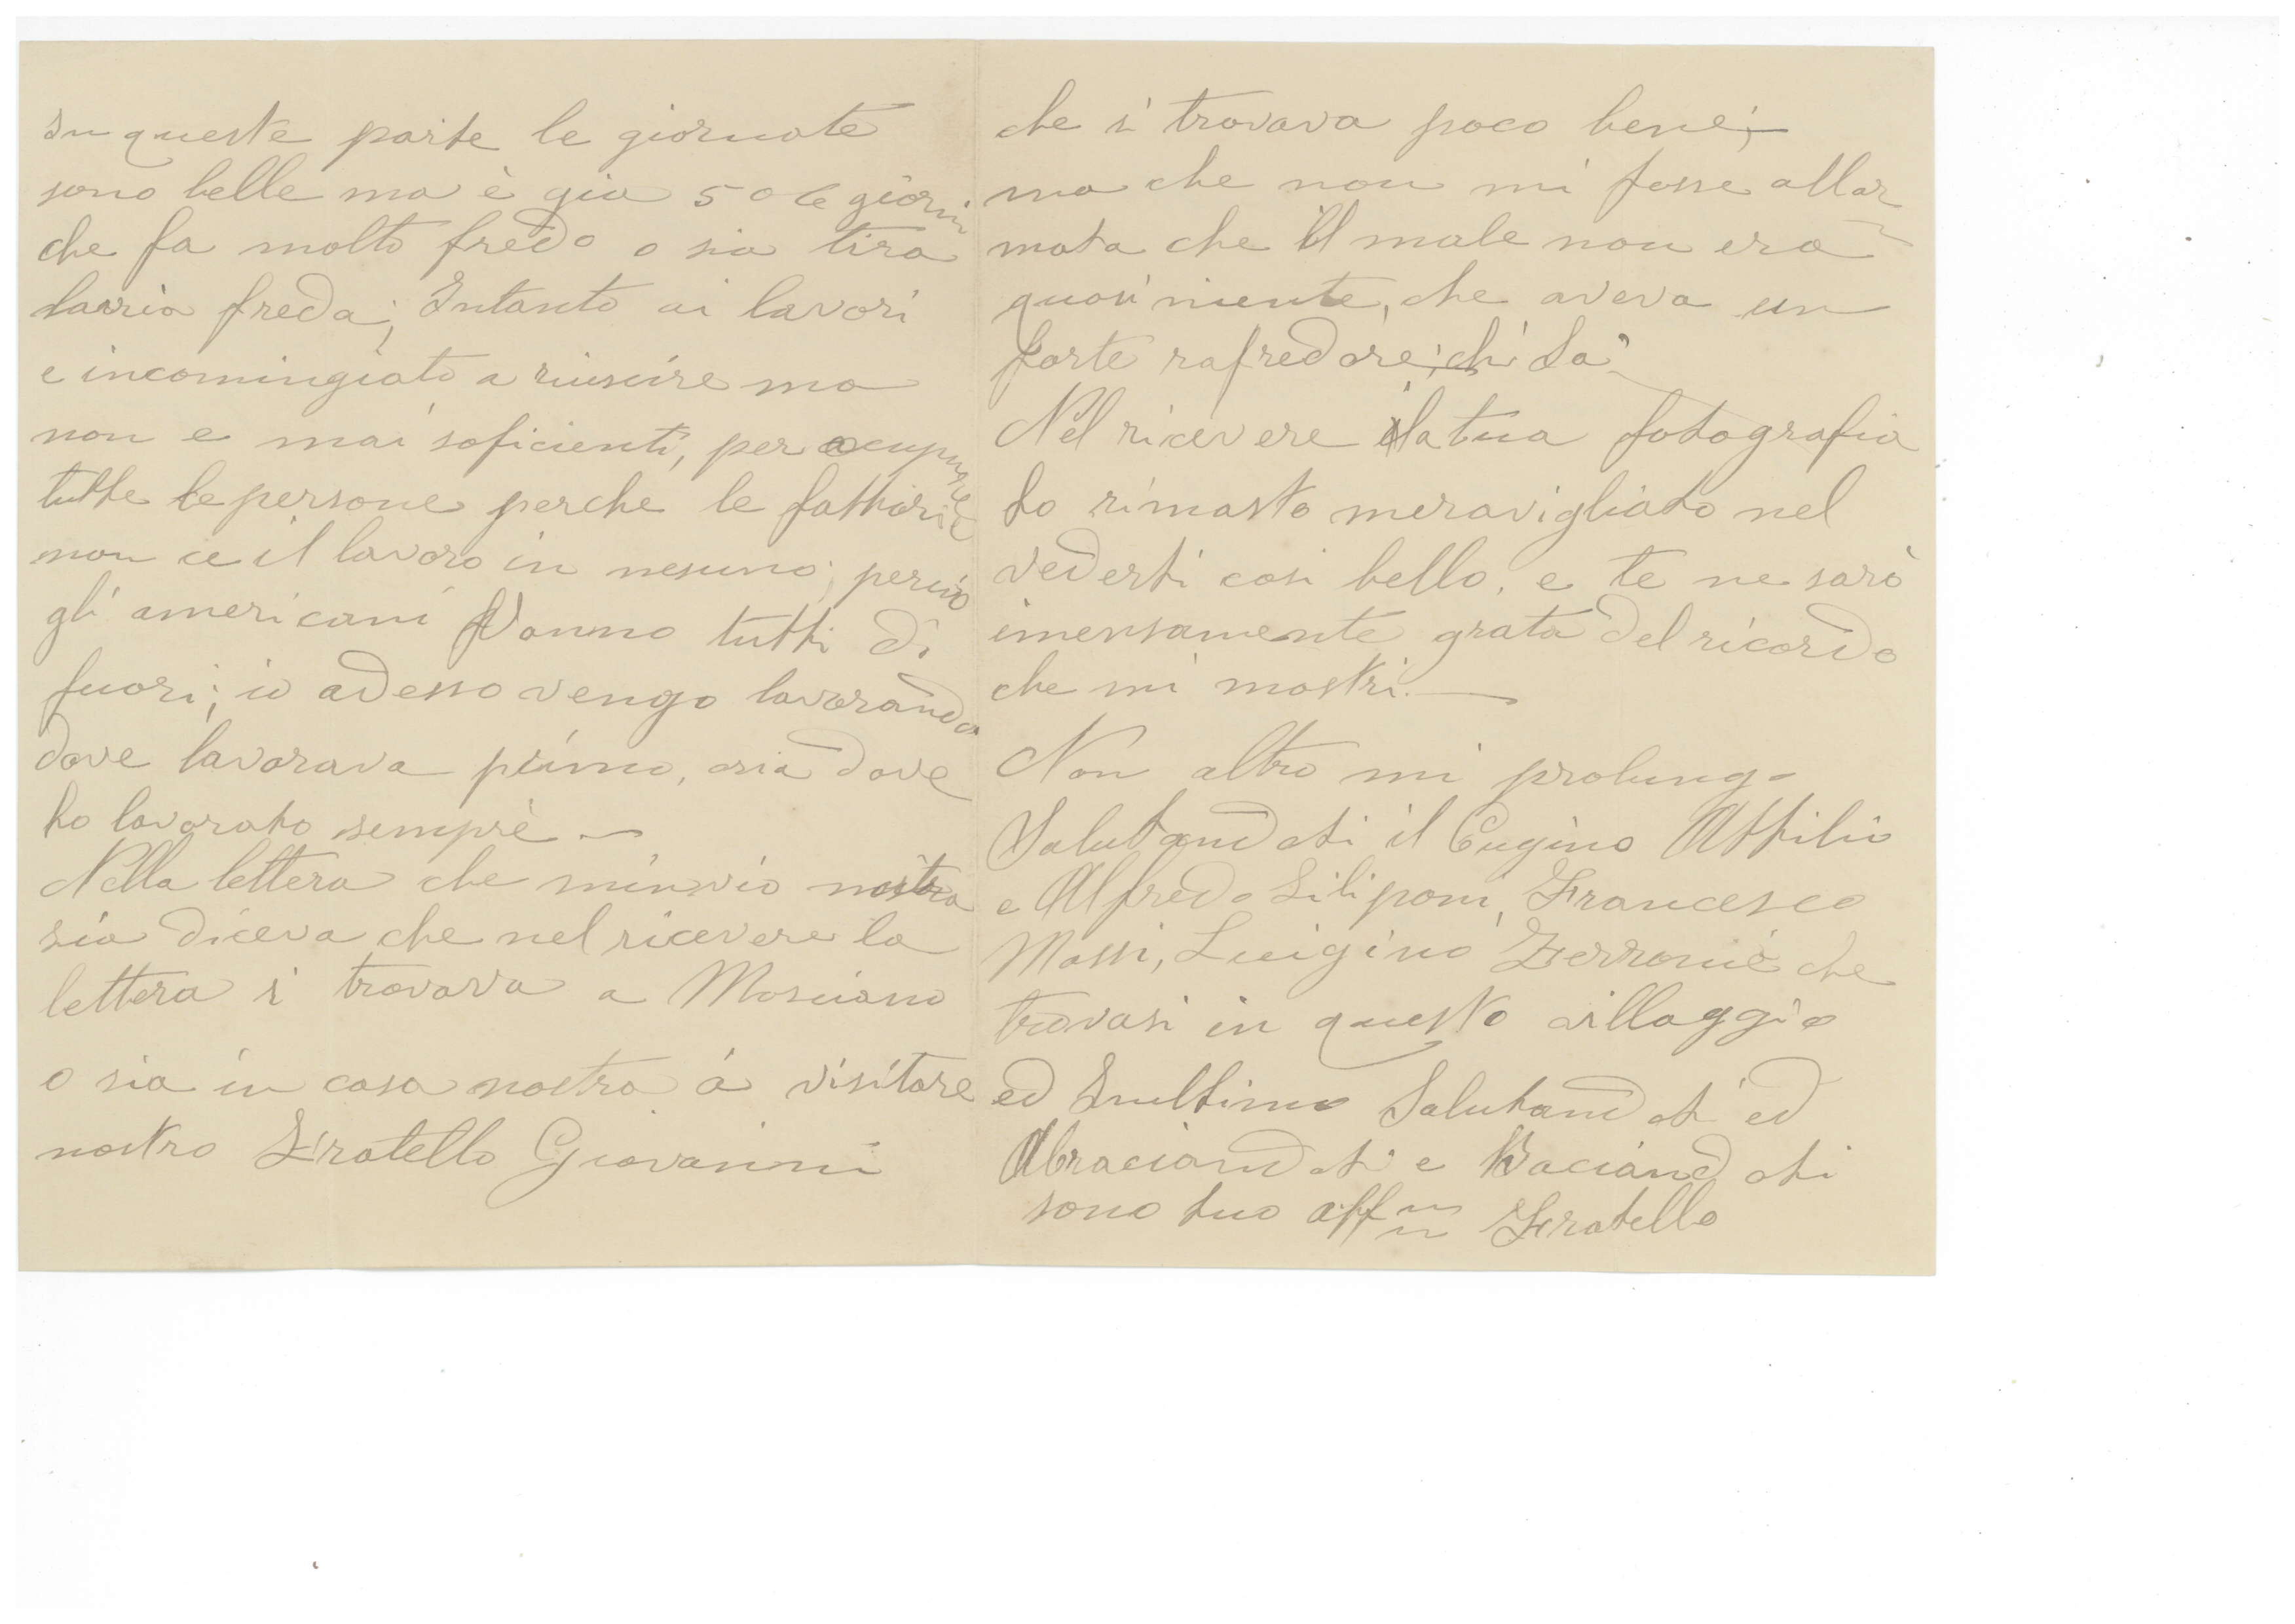 In queste parte le giornate
sono belle ma è gia 5 o 6 giorni
che fa molto fredo o sia tira
larria freda; Intanto ai lavori
e incomingiato a riuscire ma
non e mai soficienti, per ocupare
tutte le persone perche le fattorie
non ce il lavoro in nesuno; perciò
gli americani Vanno tutti di
fuori; io adesso vengo lavorando
dove lavorava primo, osia dove
ho lavorato sempre —
Nella lettera che minviò nostra
zia diceva che nel ricevere la
lettera si trovava a Mosciano
o sia in casa nostra á visitare
nostro Fratello Giovanni
che si trovava poco bene;—
ma che non mi fosse allar
mata che il male non era
quasi niente, che aveva un
forte rafredore; chi sa
Nel ricevere la tua fotografia
ho rimasto meravigliato nel
vederti cosi bello, e te ne sarò
imensamente grata del ricordo
che mi mostri.—
Non altro mi prolungo
Salutandoti il Cugino Attilio
e Alfredo Filiponi, Francesco
Massi, Luigino Ferroni che
trovasi in questo villaggio
ed Inultimo Salutandoti ed
Abraciandoti e Baciandoti
sono tuo aff Fratello